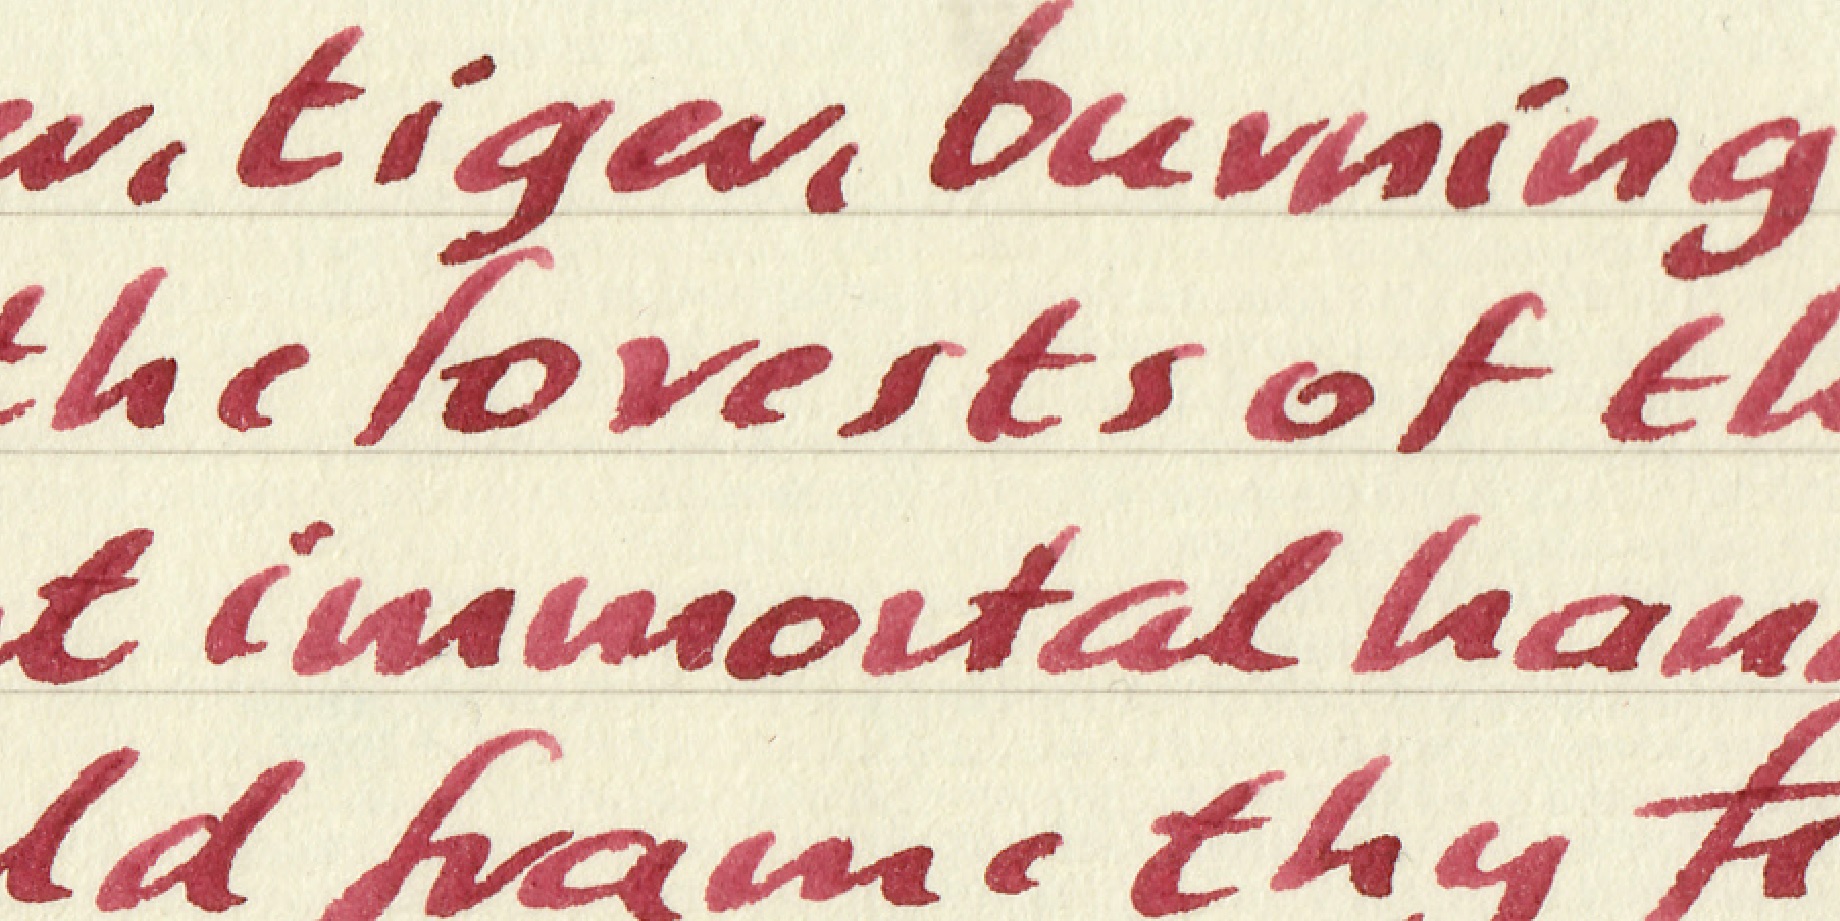 er, tiger, burning
the forests of th
t immortal han
ld frame thy fe